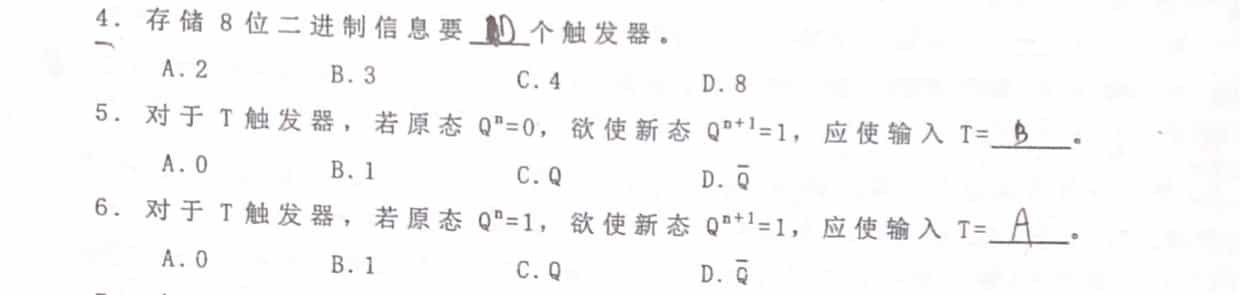 4. 存储 8 位二进制信息要 D 个触发器。
A. 2 B. 3 C. 4 D. 8
5. 对于 T 触发器，若原态 Qⁿ=0，欲使新态 Qⁿ⁺¹=1，应使输入 T= B 。
A. 0 B. 1 C. Q D. Q̅
6. 对于 T 触发器，若原态 Qⁿ=1，欲使新态 Qⁿ⁺¹=1，应使输入 T= A 。
A. 0 B. 1 C. Q D. Q̅